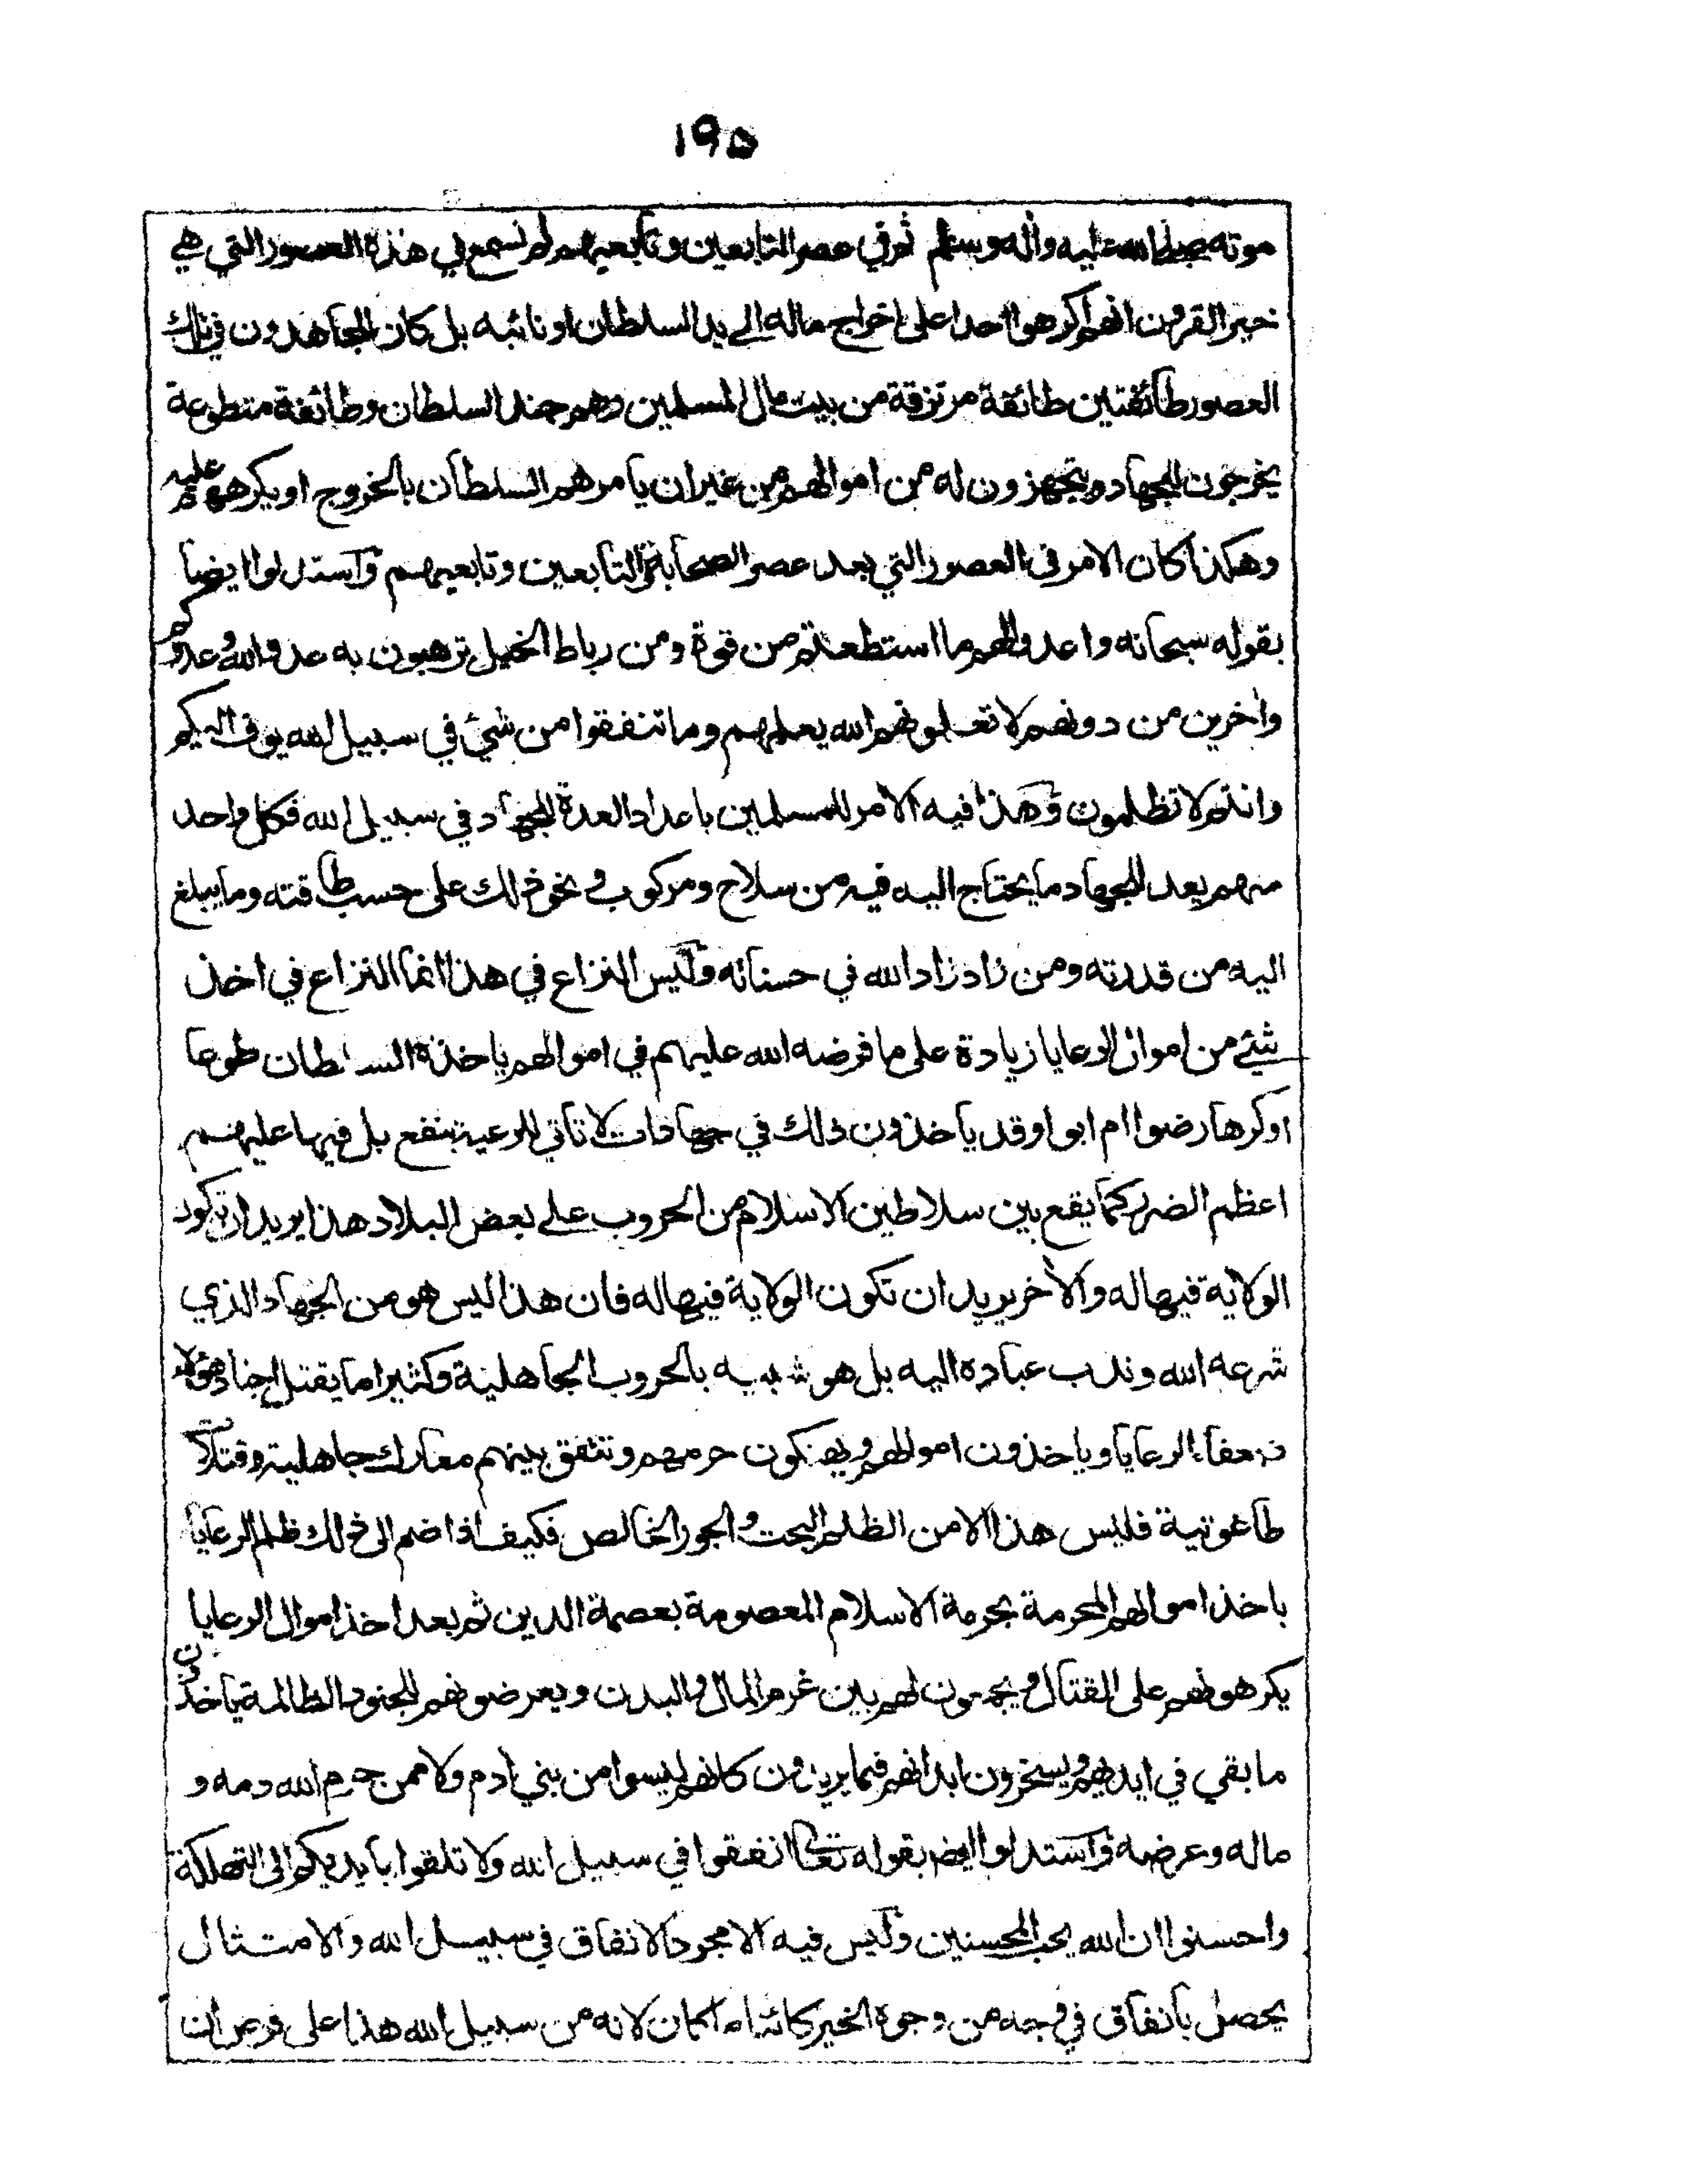 ١٩٥
موته صلى الله عليه واله وسلم ثم في عصر التابعين وتابعيهم لم نسمع في هذه العصور التي هي
خير القرون انهم اكرهوا احدا على اخراج ماله الى يد السلطان او نائبه بل كان المجاهدون في تلك
العصور طائفتين طائفة مرتزقة من بيت مال المسلمين وهم جند السلطان وطائفة متطوعة
يخرجون للجهاد ويتجهزون له من اموالهم من غير ان يامرهم السلطان بالخروج او يكرههم عليه
وهكذا كان الامر في العصور التي بعد عصر الصحابة والتابعين وتابعيهم واستدلوا ايضا
بقوله سبحانه واعدوا لهم ما استطعتم من قوة ومن رباط الخيل ترهبون به عدو الله وعدوكم
واخرين من دونهم لا تعلمونهم الله يعلمهم وما تنفقوا من شيئ في سبيل الله يوف اليكم
وانتم لا تظلمون وهذا فيه الامر للمسلمين باعداد العدة للجهاد في سبيل الله فكل واحد
منهم يعد للجهاد ما يحتاج اليه فيه من سلاح ومركوب ونحو ذلك على حسب طاقته وما يبلغ
اليه من قدرته ومن زاد زاد الله في حسناته وليس النزاع في هذا انما النزاع في اخذ
شيئ من اموال الرعايا زيادة على ما فرضه الله عليهم في اموالهم ياخذه السلطان طوعا
او كرها رضوا ام ابوا وقد ياخذون ذلك في جهادات لا تاتي للرعية بنفع بل فيها عليهم
اعظم الضرر كما يقع بين سلاطين الاسلام من الحروب على بعض البلاد هذا يريد ان تكون
الولاية فيها له والاخر يريد ان تكون الولاية فيها له فان هذا ليس هو من الجهاد الذي
شرعه الله وندب عباده اليه بل هو شبيه بالحروب الجاهلية وكثيرا ما يقتل اجناد هؤلاء
ضعفاء الرعايا وياخذون اموالهم ويهتكون حرمهم وتتفق بينهم معارك جاهلية وقتلات
طاغوتية فليس هذا الا من الظلم البحت والجور الخالص فكيف اذا ضم الى ذلك ظلم الرعايا
باخذ اموالهم المحرمة بحرمة الاسلام المعصومة بعصمة الدين ثم بعد اخذ اموال الرعايا
يكرهونهم على القتال ويجمعون لهم بين غرم المال والبدن ويعرضونهم للجنود الظالمة ياخذون
ما بقي في ايديهم ويسخرون ابدانهم فيما يريدون كانهم ليسوا من بني ادم ولا ممن حرم الله دمه و
ماله وعرضه واستدلوا ايضا بقوله تعالى انفقوا في سبيل الله ولا تلقوا بايديكم الى التهلكة
واحسنوا ان الله يحب المحسنين وليس فيه الا مجرد الانفاق في سبيل الله والامتثال
يحصل بانفاق في وجه من وجوه الخير كائنا ما كان لانه من سبيل الله هذا على فرض ان